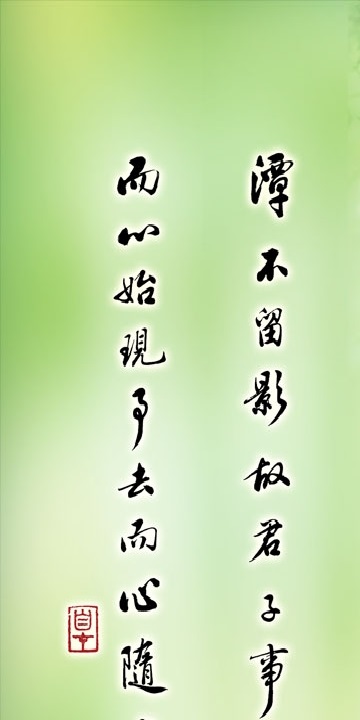 潭不留影故君子事
而心始現事去而心隨